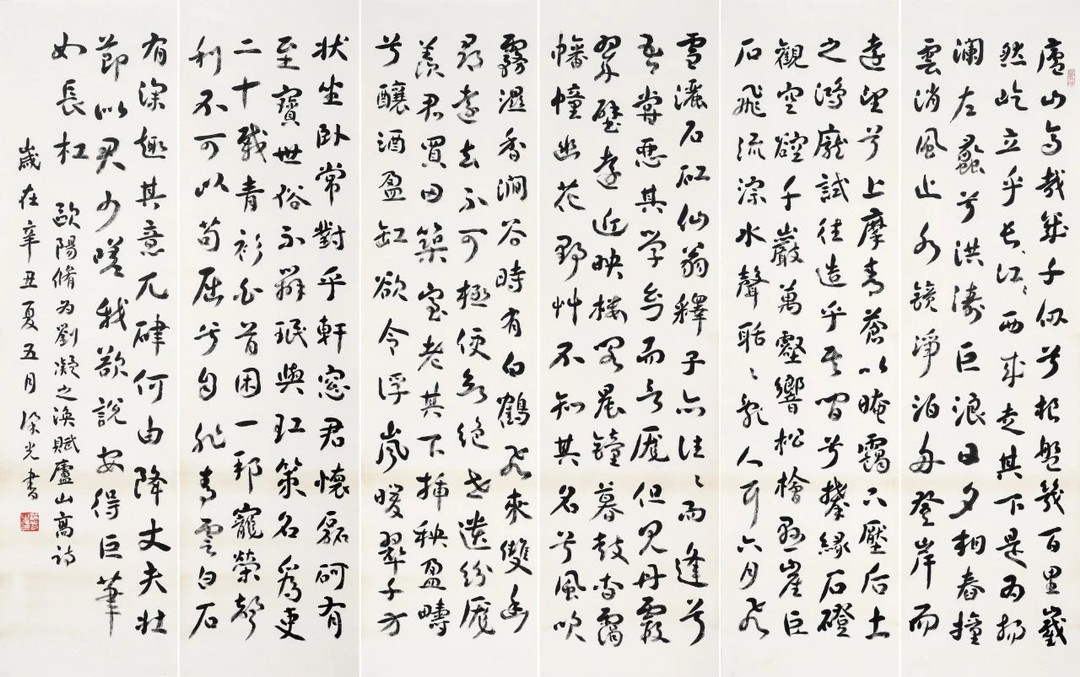 廬山高哉幾千仞兮根盤幾百里巀
然屹立乎長江〻西來走其下是為揚
瀾左蠡兮洪濤巨浪日夕相舂撞
雲消風止水鏡淨泊舟登岸而
遠望兮上摩青蒼以晻靄下壓后土
之鴻龐試往造乎其間兮攀緣石磴
觀空硿千巖萬壑響松檜懸崖巨
石飛流淙水聲聒〻亂人耳六月飛
雪灑石矼仙翁釋子亦往〻而逢兮
吾嘗惡其学幻而言厖但見丹霞
翠壁遠近映樓閣晨鐘暮鼓杳靄
幡幢幽花野艸不知其名兮風吹
露濕香澗谷時有白鶴飛來雙幽
尋遠去不可極便欲絕世遺紛厖
羨君買田築室老其下插秧盈疇
兮釀酒盈缸欲令浮嵐暖翠千万
狀坐臥常對乎軒窓君懷磊砢有
至寶世俗不辨珉與玒策名為吏
二十載青衫白首困一邦寵榮聲
利不可以苟屈兮自非青雲白石
有深趣其意兀硉何由降丈夫壯
節似君少嗟我欲說安得巨筆
如長杠
歐陽脩為劉凝之渙賦廬山高詩
歲在辛丑夏五月 光書